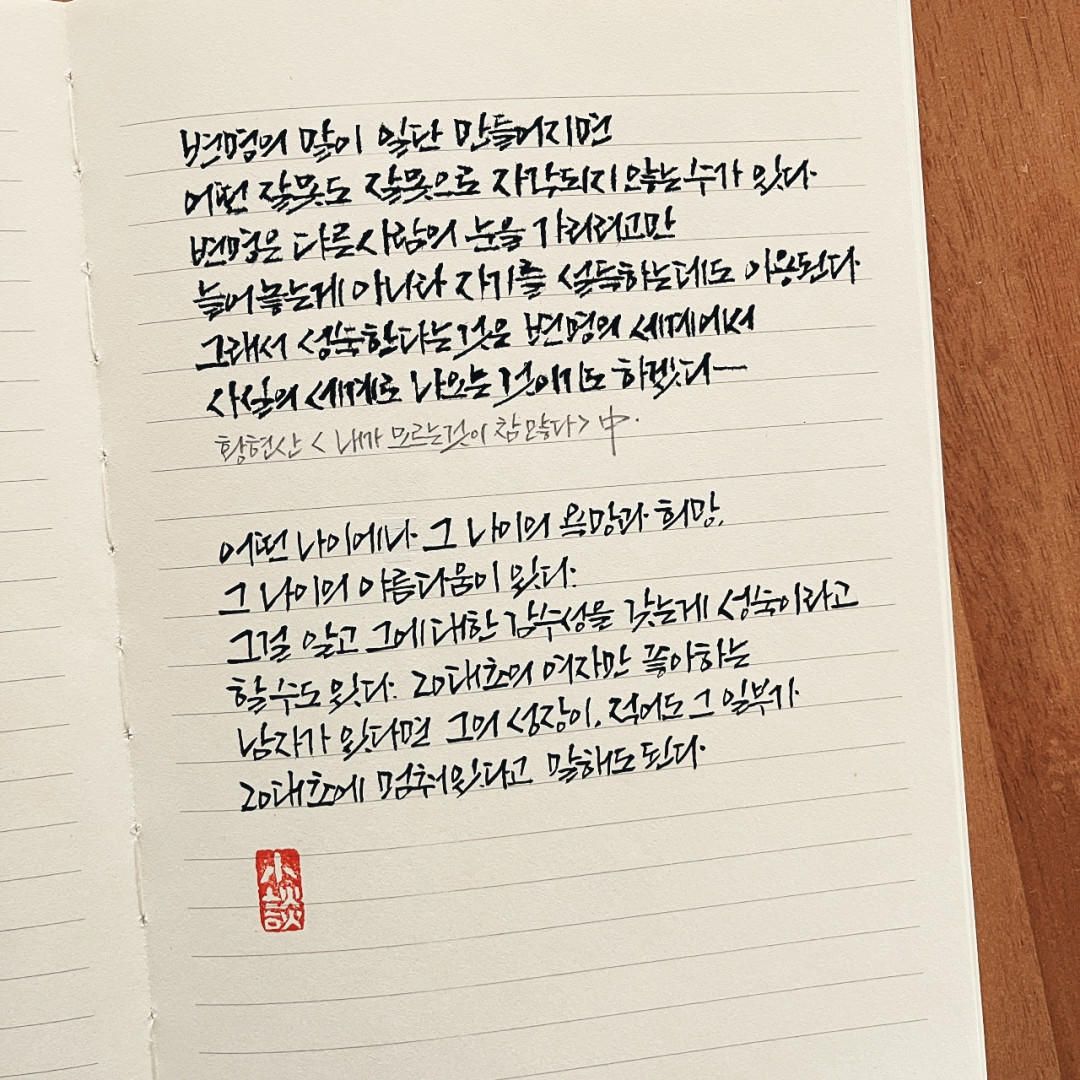 변명의 말이 일단 만들어지면
어떤 잘못도 잘못으로 자각되지 않는 수가 있다.
변명은 다른 사람의 눈을 가리려고만
늘어놓는게 아니라 자기를 설득하는데도 이용된다.
그래서 성숙한다는 것은 변명의 세계에서
사실의 세계로 나오는 것이기도 하겠다—
황현산 < 내가 모르는 것이 참 많다 > 中.
어떤 나이에나 그 나이의 욕망과 희망,
그 나이의 아름다움이 있다.
그걸 알고 그에 대한 감수성을 갖는게 성숙이라고
할 수도 있다. 20대초의 여자만 좋아하는
남자가 있다면 그의 성장이, 적어도 그 일부가
20대초에 멈춰있다고 말해도 된다.
小談